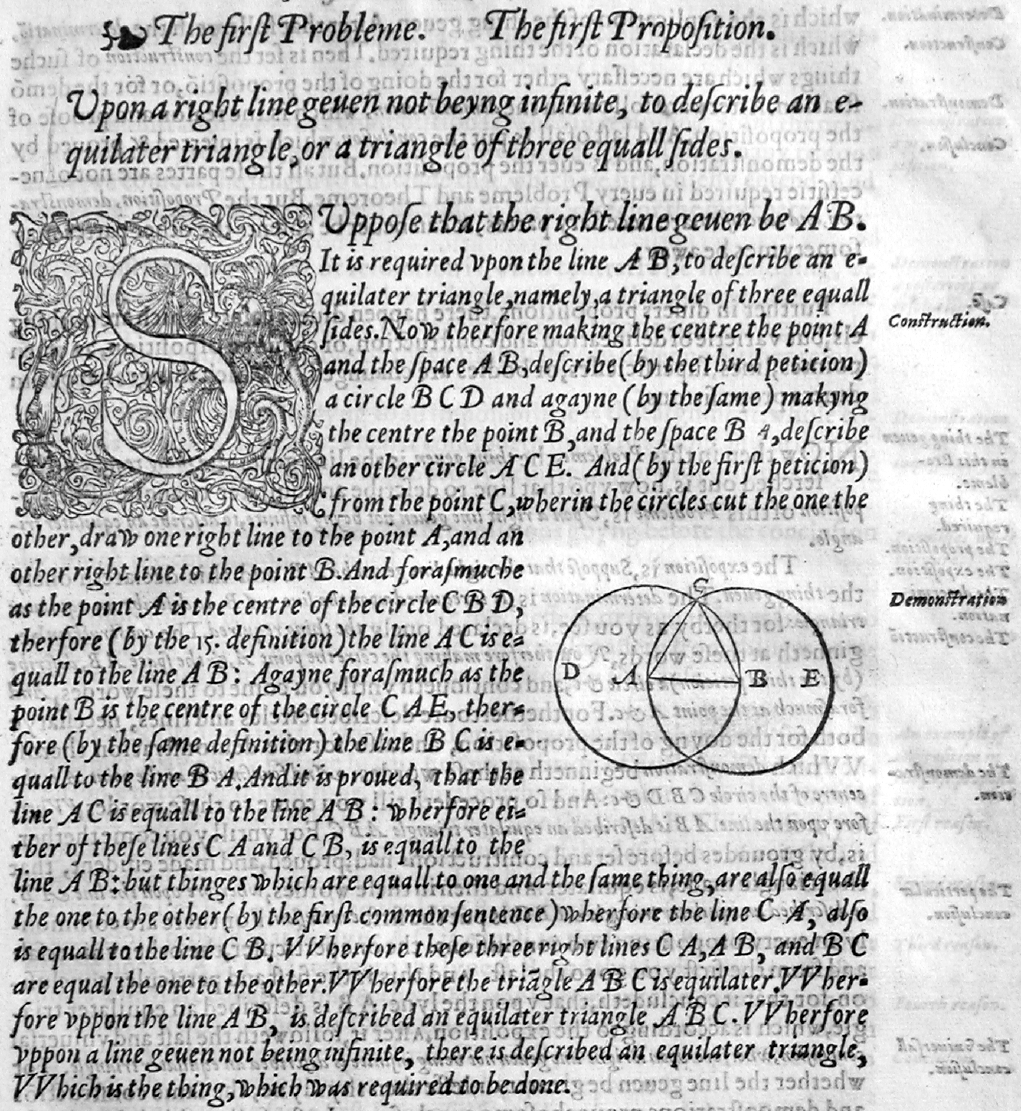 The firſt Probleme. The firſt Propoſition.
Vpon a right line geuen not beyng infinite, to deſcribe an e-
quilater triangle, or a triangle of three equall ſides.
SVppoſe that the right line geuen be A B.
It is required vpon the line A B, to deſcribe an e-
quilater triangle, namely, a triangle of three equall
ſides. Now therfore making the centre the point A
and the ſpace A B, deſcribe (by the third peticion)
a circle B C D and agayne (by the ſame) makyng
the centre the point B, and the ſpace B A, deſcribe
an other circle A C E. And (by the firſt peticion)
from the point C, wherin the circles cut the one the
other, draw one right line to the point A, and an
other right line to the point B. And foraſmuche
as the point A is the centre of the circle C B D,
therfore (by the 15. definition) the line A C is e-
quall to the line A B: Agayne foraſmuch as the
point B is the centre of the circle C A E, ther-
fore (by the ſame definition) the line B C is e-
quall to the line B A. And it is proued, that the
line A C is equall to the line A B: wherfore ei-
ther of theſe lines C A and C B, is equall to the
line A B: but thinges which are equall to one and the ſame thing, are alſo equall
the one to the other (by the firſt common ſentence) wherfore the line C A, alſo
is equall to the line C B. VVherfore theſe three right lines C A, A B, and B C
are equal the one to the other. VVherfore the triãgle A B C is equilater. VVher-
fore vppon the line A B, is deſcribed an equilater triangle A B C. VVherfore
vppon a line geuen not being infinite, there is deſcribed an equilater triangle,
VVhich is the thing, which was required to be done.
Conſtruction.
Demonſtration
C
D A B E